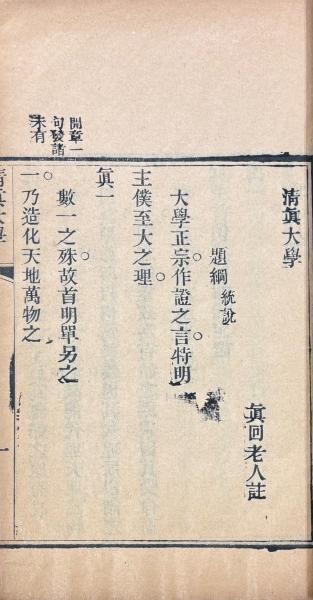 清眞大學
眞回老人註
題綱 統説
大學正宗作證之言特明
主僕至大之理
眞一
數一之殊故首明單另之
一乃造化天地萬物之
開章一
句發諸
未有
清眞大學
一